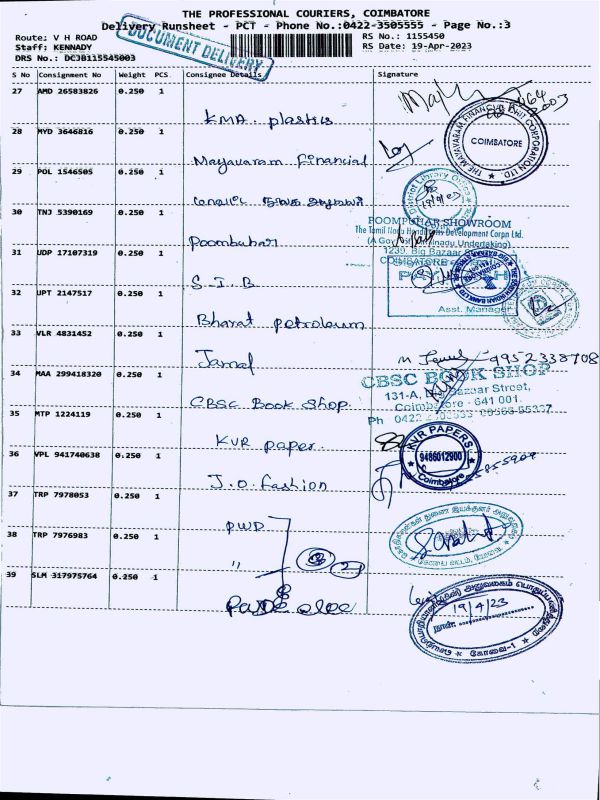 THE PROFESSIONAL COURIERS, COIMBATORE
Delivery Runsheet - PCT - Phone No.:0422-3505555 - Page No.:3
DOCUMENT DELIVERY
Route: V H ROAD
Staff: KENNADY
DRS No.: DCJB115545003
RS No.: 1155450
RS Date: 19-Apr-2023
S No Consignment No Weight PCS. Consignee Details Signature
27 AMD 26583826 0.250 1 KMA. plastics
28 MYD 3646816 0.250 1 Mayavaram Financial
THE MAYAVARAM FINANCIAL CORPORATION LTD. COIMBATORE
29 POL 1546505 0.250 1
District Library Office
30 TNJ 5390169 0.250 1 Poombuhar
POOMPUHAR SHOWROOM
The Tamil Nadu Development Corpn Ltd.
(A Govt. Tamilnadu Undertaking)
1239, Big Bazaar
31 UDP 17107319 0.250 1 S-I B
Asst. Manager
32 UPT 2147517 0.250 1 Bharat petroleum
33 VLR 4831452 0.250 1 Jamal
9952338708
34 MAA 299418320 0.250 1 CBSC Book Shop.
CBSC BOOK SHOP
131-A, Big Bazaar Street,
Coimbatore - 641 001.
35 MTP 1224119 0.250 1 KVR paper.
KVR PAPERS
9486012900
Coimbatore
36 VPL 941740638 0.250 1 J.O. fashion
37 TRP 7978053 0.250 1 PWD
38 TRP 7976983 0.250 1 "
39 SLM 317975764 0.250 1
19/4/23
நாள்:
கோவை-1